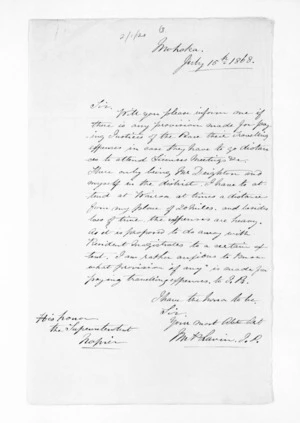 Mohaka.
July 15th 1868.
Sir,
Will you please inform me if
there is any provision made for pay
ing Justices of the Peace their travelling
expenses in case they have to go distan
ces to attend Licences Meetings &c.
There only being Mr Deighton and
myself in the district. I have to at
tend at Wairoa at times a distance
from my place of 20 Miles, and besides
loss of time the expenses are heavy.
As it is proposed to do away with
Resident Magistrates to a certain ex
tent. I am rather anxious to know
what provision if any is made for
paying travelling expenses, to J.P.
I have the honor to be,
Sir,
Your most Obdt Svt
Lavin, J.P.
His honor
the Superintendent
Napier